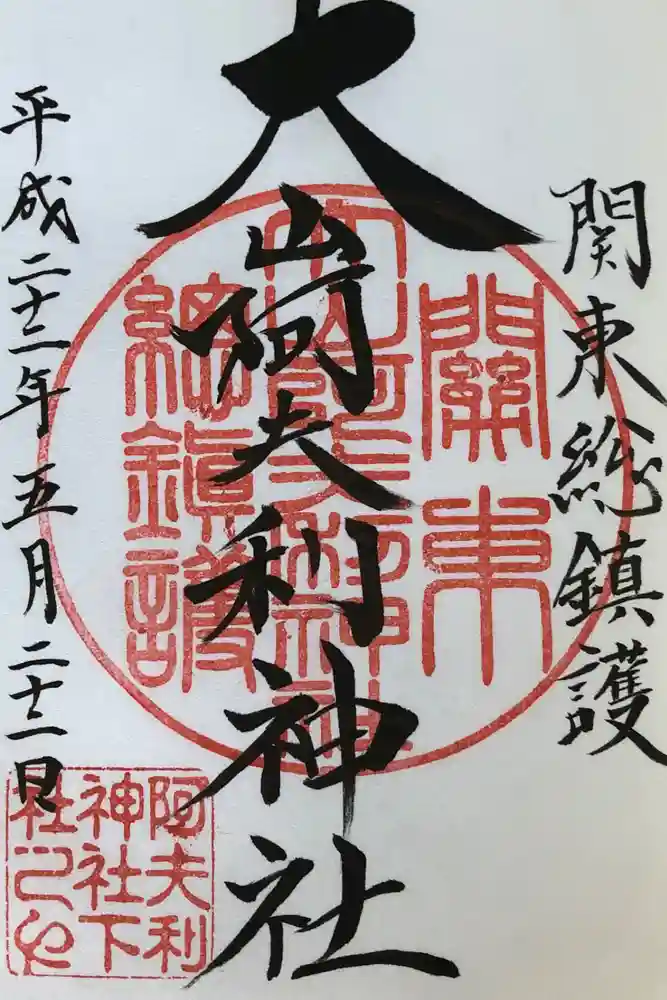 関東総鎮護
大山阿夫利神社
平成二十二年五月二十二日
關東
大山阿夫利神社
總鎮護
阿夫利
神社下
社